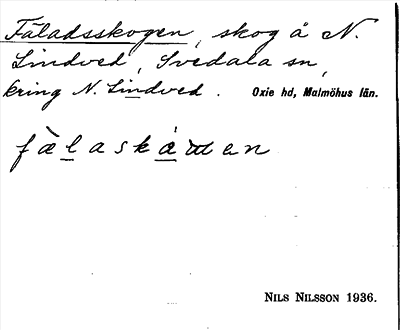 Fäladsskogen, skog å N.
Lindved, Svedala sn,
kring N. Lindved. Oxie hd, Malmöhus län.
NILS NILSSON 1936.